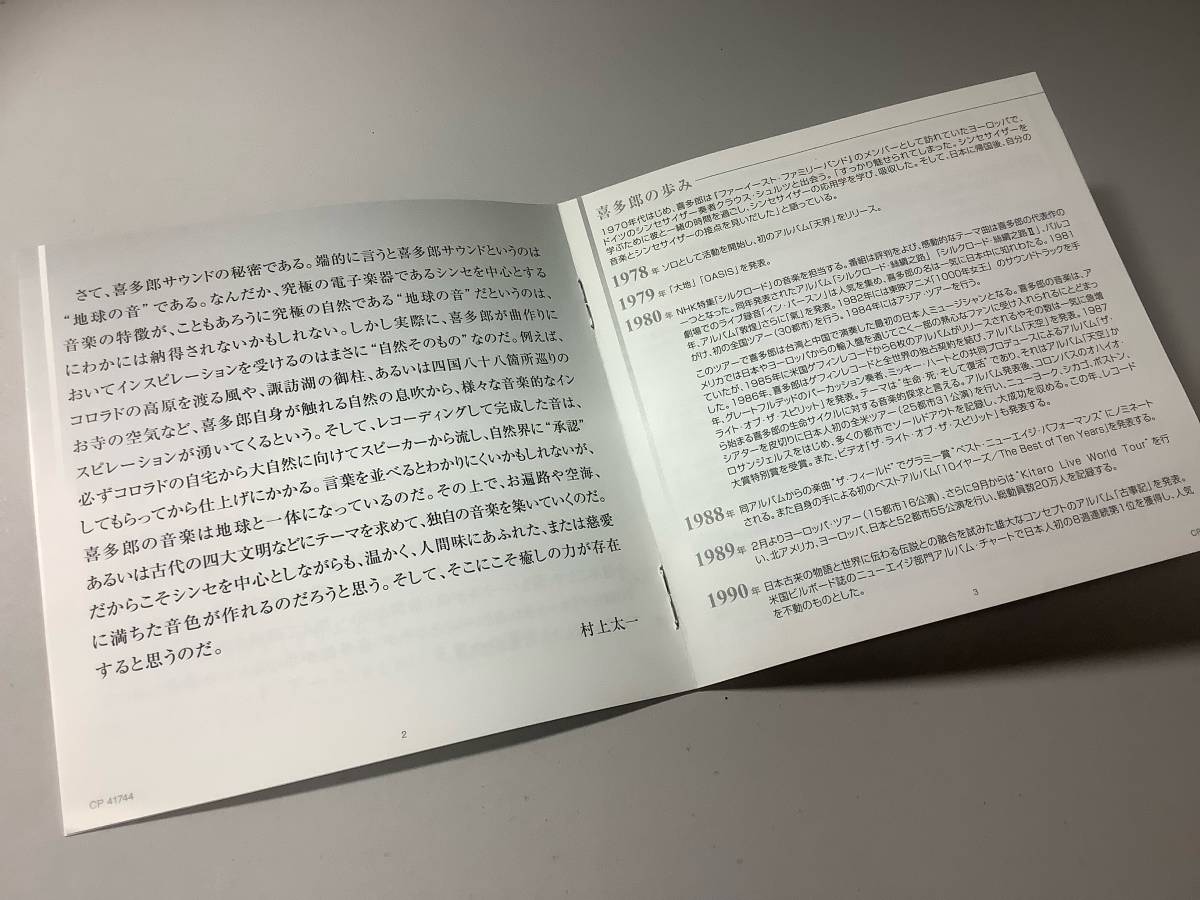 さて、喜多郎サウンドの秘密である。端的に言うと喜多郎サウンドというのは
“地球の音”である。なんだか、究極の電子楽器であるシンセを中心とする
音楽の特徴が、こともあろうに究極の自然である“地球の音”だというのは、
にわかには納得されないかもしれない。しかし実際に、喜多郎が曲作りに
おいてインスピレーションを受けるのはまさに“自然そのもの”なのだ。例えば、
コロラドの高原を渡る風や、諏訪湖の御柱、あるいは四国八十八箇所巡りの
お寺の空気など、喜多郎自身が触れる自然の息吹から、様々な音楽的なイン
スピレーションが湧いてくるという。そして、レコーディングして完成した音は、
必ずコロラドの自宅から大自然に向けてスピーカーから流し、自然界に“承認”
してもらってから仕上げにかかる。言葉を並べるとわかりにくいかもしれないが、
喜多郎の音楽は地球と一体になっているのだ。その上で、お遍路や空海、
あるいは古代の四大文明などにテーマを求めて、独自の音楽を築いていくのだ。
だからこそシンセを中心としながらも、温かく、人間味にあふれた、または慈愛
に満ちた音色が作れるのだろうと思う。そして、そこにこそ癒しの力が存在
すると思うのだ。
村上太一
2
CP 41744
喜多郎の歩み
1970年代はじめ、喜多郎は『ファーイースト・ファミリーバンド』のメンバーとして訪れていたヨーロッパで、
ドイツのシンセサイザー奏者クラウス・シュルツと出会う。「すっかり魅せられてしまった。シンセサイザーを
学ぶために彼と一緒の時間を過ごし、シンセサイザーの応用学を学び、吸収した。そして、日本に帰国後、自分の
音楽とシンセサイザーの接点を見いだした」と語っている。
1978年 ソロとして活動を開始し、初のアルバム「天界」をリリース。
1979年 「大地」「OASIS」を発表。
1980年 NHK特集「シルクロード」の音楽を担当する。番組は評判をよび、感動的なテーマ曲は喜多郎の代表作の
一つとなった。同年発表されたアルバム「シルクロード・絲綢之路」「シルクロード・絲綢之路Ⅱ」、パルコ
劇場でのライブ録音「イン・パースン」は人気を集め、喜多郎の名は一気に日本中に知れわたる。1981
年、アルバム「敦煌」さらに「氣」を発表。1982年には東映アニメ「1000年女王」のサウンドトラックを手
がけ、初の全国ツアー（30都市）を行う。1984年にはアジア・ツアーを行う。
このツアーで喜多郎は台湾と中国で演奏した最初の日本人ミュージシャンとなる。喜多郎の音楽は、ア
メリカでは日本やヨーロッパからの輸入盤を通じてごく一部の熱心なファンに受け入れられるにとどまっ
ていたが、1985年に米国ゲフィンレコードから6枚のアルバムがリリースされるやその数は一気に急増
した。1986年、喜多郎はゲフィンレコードと全世界の独占契約を結び、アルバム「天空」を発表。1987
年、グレートフルデッドのパーカッション奏者、ミッキー・ハートとの共同プロデュースによるアルバム「ザ・
ライト・オブ・ザ・スピリット」を発表。テーマは“生命・死、そして復活”であり、それはアルバム「天空」か
ら始まる喜多郎の生命サイクルに対する音楽的探求と言える。アルバム発表後、コロンバスのオハイオ・
シアターを皮切りに日本人初の全米ツアー（25都市31公演）を行い、ニューヨーク、シカゴ、ボストン、
ロサンジェルスをはじめ、多くの都市でソールドアウトを記録し、大成功を収める。この年、レコード
大賞特別賞を受賞。また、ビデオ「ザ・ライト・オブ・ザ・スピリット」も発表する。
1988年 同アルバムからの楽曲“ザ・フィールド”でグラミー賞“ベスト・ニューエイジ・パフォーマンス”にノミネート
される。また自身の手による初のベストアルバム「10イヤーズ/The Best of Ten Years」を発表する。
1989年 2月よりヨーロッパ・ツアー（15都市16公演）、さらに9月からは“Kitaro Live World Tour”を行
い、北アメリカ、ヨーロッパ、日本と52都市55公演を行い、総動員数20万人を記録する。
1990年 日本古来の物語と世界に伝わる伝説との融合を試みた雄大なコンセプトのアルバム「古事記」を発表。
米国ビルボード誌のニューエイジ部門アルバム・チャートで日本人初の8週連続第1位を獲得し、人気
を不動のものとした。
3
CP